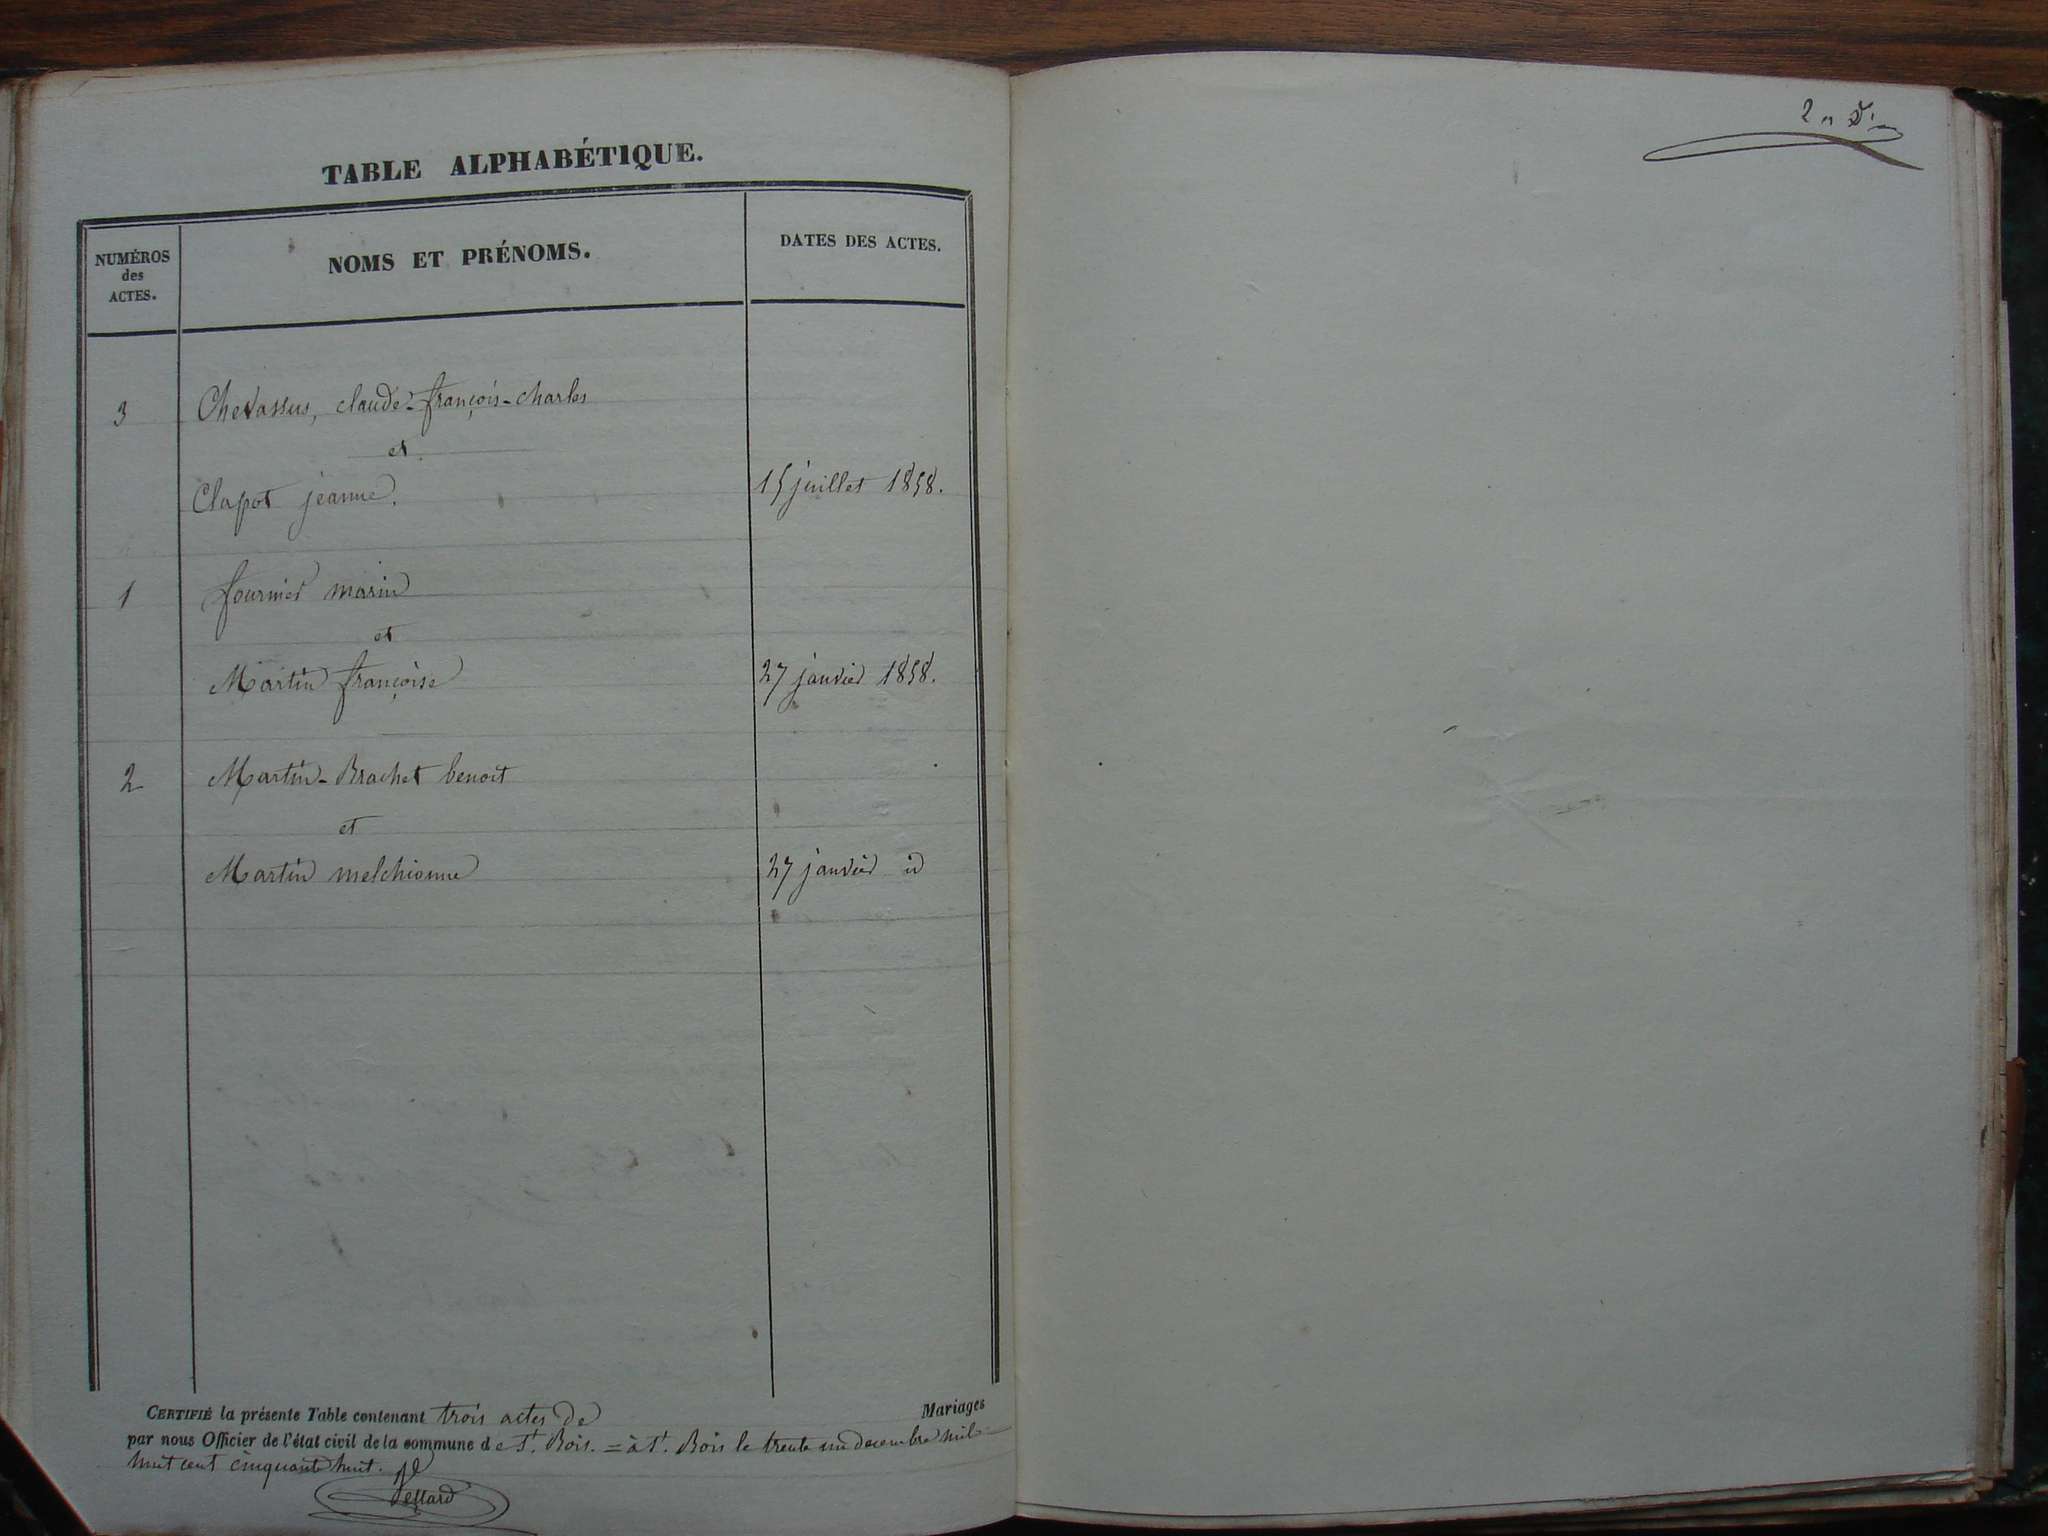 TABLE ALPHABÉTIQUE.
NUMÉROS
des
ACTES.
NOMS ET PRÉNOMS.
DATES DES ACTES.
3 Chevassus, claude-françois-charles
et
Clapot jeanne. 15 juillet 1858.
1 fournier marin
et
Martin françoise 27 janvier 1858.
2 Martin-Brachet benoit
et
Martin melchionne 27 janvier id
CERTIFIÉ la présente Table contenant trois actes de Mariages
par nous Officier de l'état civil de la commune de St. Bois. = à St. Bois le trente un decembre mil
huit cent cinquante huit.
2